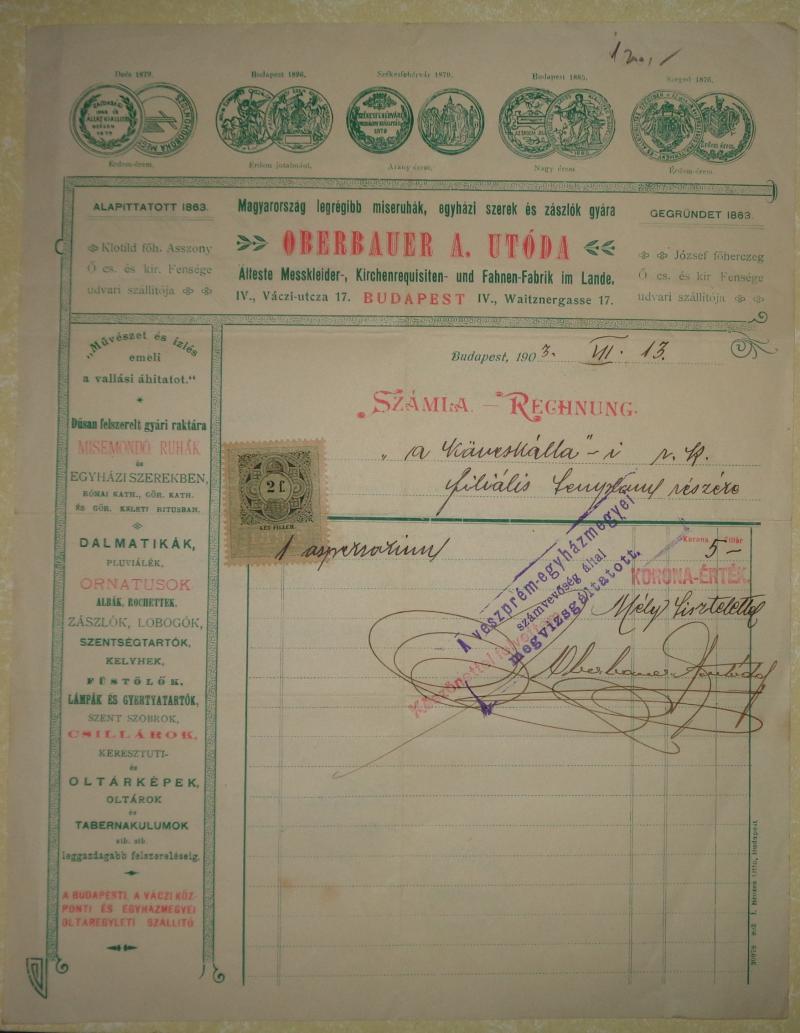 Deés 1879.
Budapest 1896.
Székesfehérvár 1879.
Budapest 1885.
Szeged 1876.
Érdem-érem.
Érdem jutalmául.
Arany érem.
Nagy érem
Érdem-érem.
ALAPITTATOTT 1863.
Klotild főh. Asszony
Ő cs. és kir. Fensége
udvari szállítója
Magyarország legrégibb miseruhák, egyházi szerek és zászlók gyára
OBERBAUER A. UTÓDA
Älteste Messkleider-, Kirchenrequisiten- und Fahnen-Fabrik im Lande.
IV., Váczi-utcza 17. BUDAPEST IV., Waitznergasse 17.
GEGRÜNDET 1863.
József főherczeg
Ő cs. és kir Fensége
udvari szállítója
„Művészet és izlés
emeli
a vallási áhitatot."
Dúsan felszerelt gyári raktára
MISEMONDÓ RUHÁK
és
EGYHÁZI SZEREKBEN,
RÓMAI KATH., GÖR. KATH.
ÉS GÖR. KELETI RITUSBAN.
DALMATIKÁK,
PLUVIÁLÉK,
ORNATUSOK
ALBÁK, ROCHETTEK,
ZÁSZLÓK, LOBOGÓK,
SZENTSÉGTARTÓK,
KELYHEK,
FÜSTÖLŐK,
LÁMPÁK ÉS GYERTYATARTÓK,
SZENT SZOBROK,
CSILLÁROK,
KERESZTUTI-
és
OLTÁRKÉPEK,
OLTÁROK
és
TABERNAKULUMOK
stb. stb.
leggazdagabb felszereléseig.
A BUDAPESTI, A VÁCZI KÖZ-
PONTI ÉS EGYHÁZMEGYEI
OLTÁREGYLETI SZÁLLITÓ
Budapest, 1903. VII. 13.
SZÁMLA. — RECHNUNG.
„a Köveskálla"-i r. k.
filiális templom részére
2 f.
KÉT FILLÉR
Korona fillér
1 aspersorium 5 –
KORONA-ÉRTÉK
A veszprém-egyházmegyei
számvevőség által
megvizsgáltatott.
Mély tisztelettel
Oberbauer A. utóda